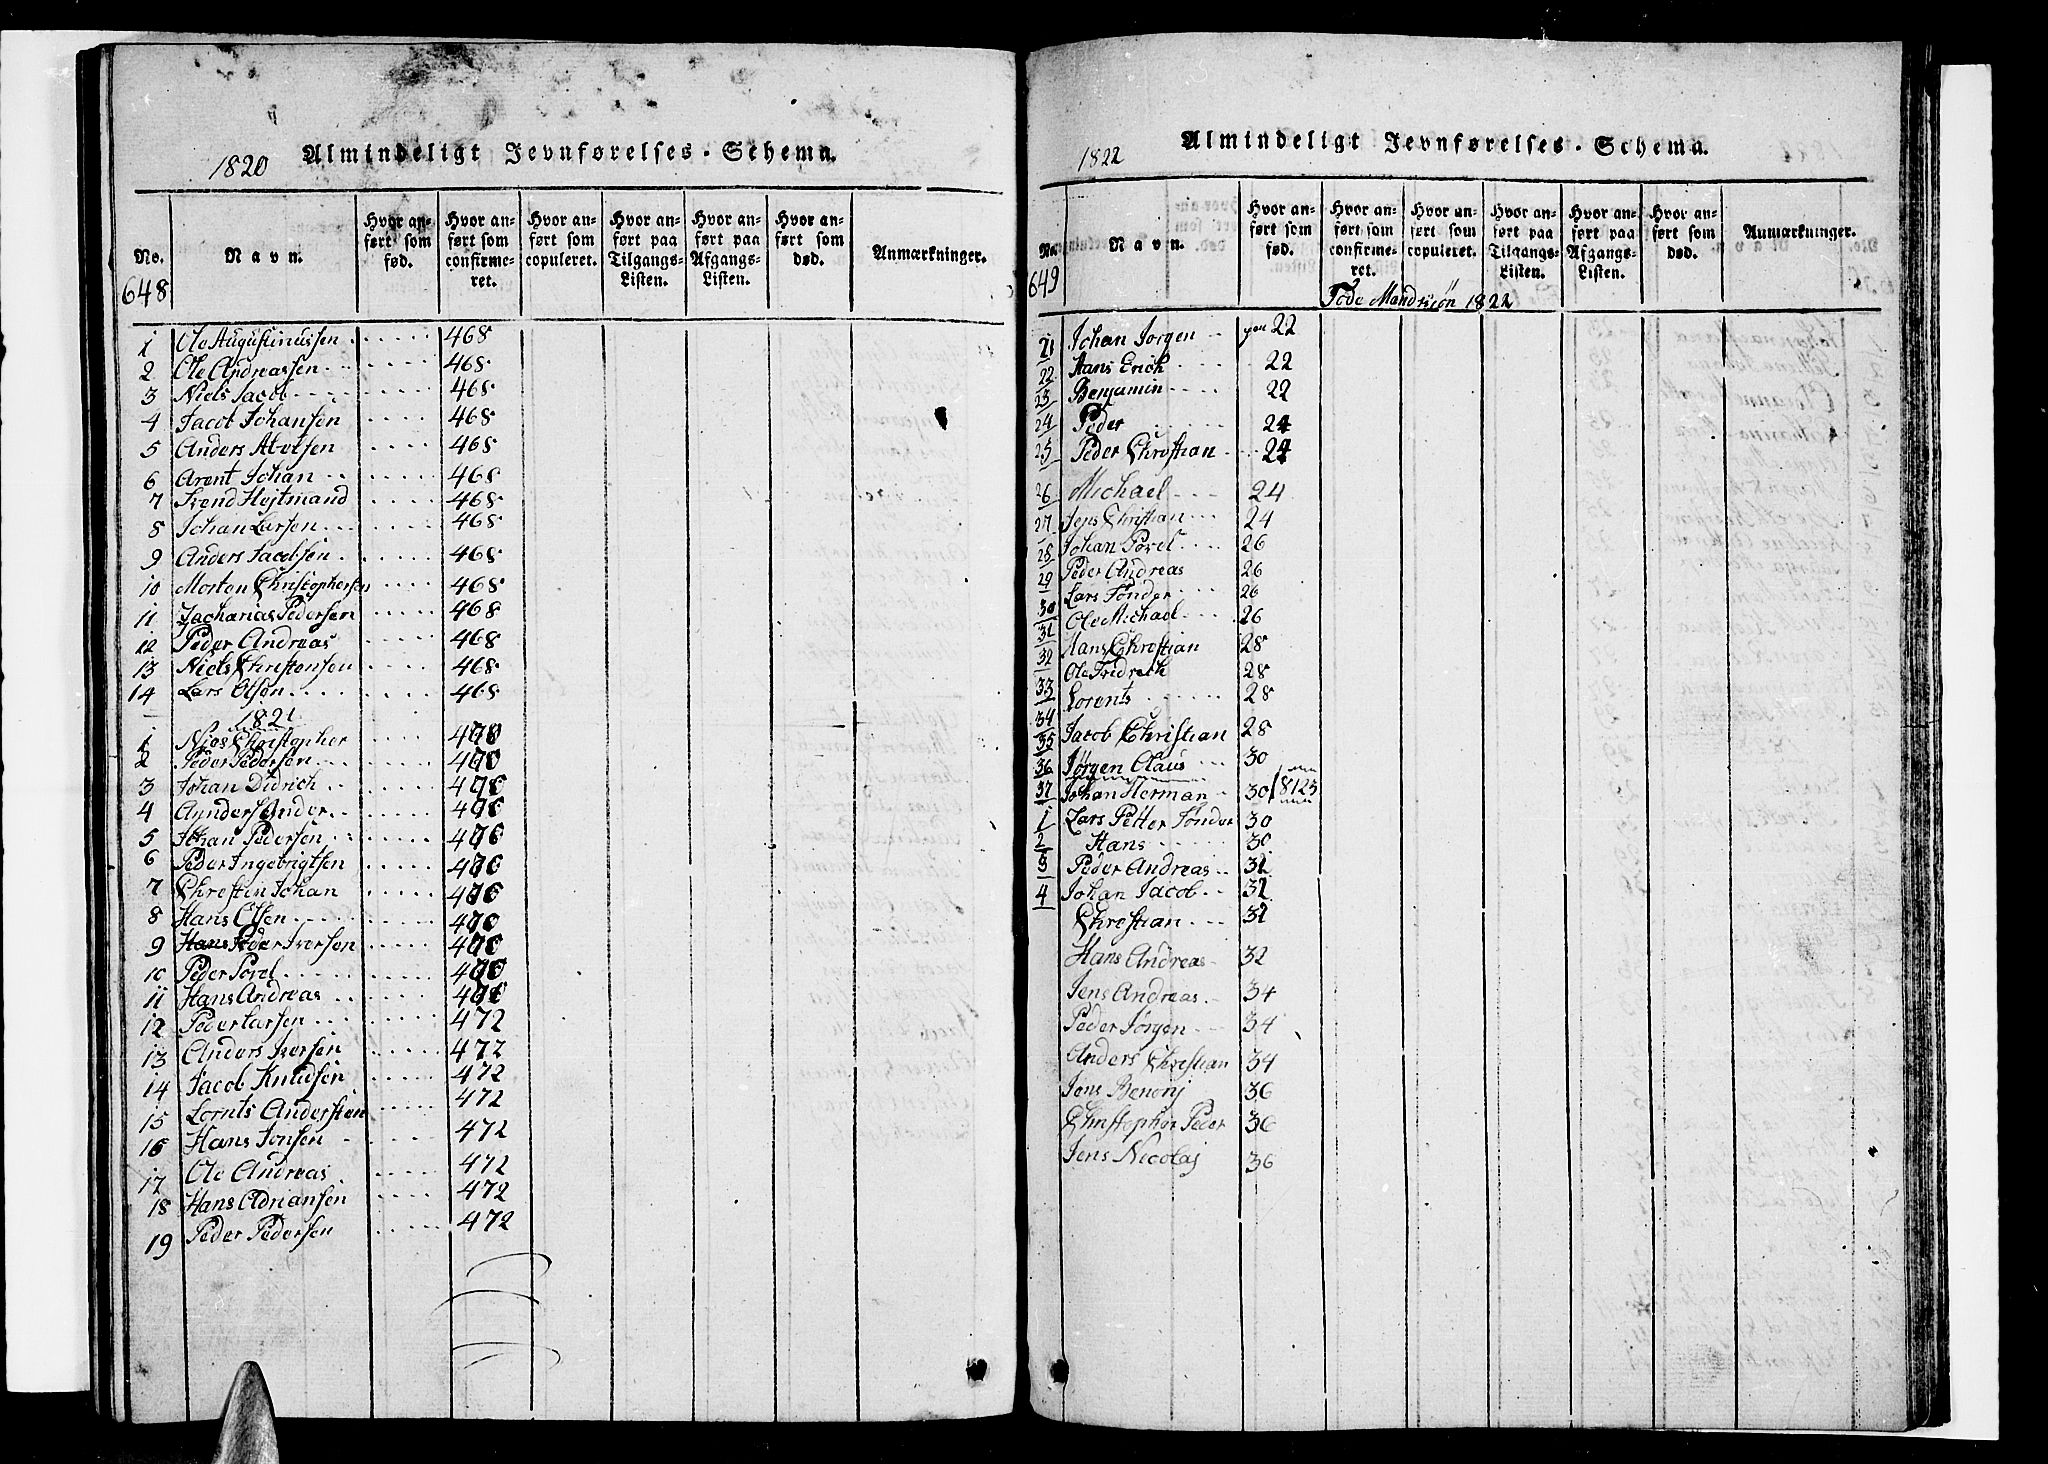 1820 Almindeligt Jevnførelses-Schema.
No. Navn. Hvor anført som fød. Hvor anført som confirmeret. Hvor anført som copuleret. Hvor anført paa Tilgangs-Listen. Hvor anført paa Afgangs-Listen. Hvor anført som død. Anmærkninger.
648
1 Ole Augustinussen 468
2 Ole Andreassen 468
3 Niels Jacob 468
4 Jacob Johansen 468
5 Anders 468
6 Arent Johan 468
7 Svend Hejtmand 468
8 Johan Larsen 468
9 Anders Jacobsen 468
10 Morten Christophersen 468
11 Zacharias Pedersen 468
12 Peder Andreas 468
13 Niels Christensen 468
14 Lars Olsen 468
1821
1 Christopher
2 Peder Pedersen
3 Johan Didrich
4
5 Johan Pedersen
6 Peder Ingebrigtsen
7 Christen Johan
8 Hans Olsen
9 Hans Peder Iversen
10 Peder Povel
11 Hans Andreas
12 Peder Larsen 472
13 Anders Iversen 472
14 Jacob Knudsen 472
15 Lornts Andersen 472
16 Hans Jonsen 472
17 Ole Andreas 472
18 Hans Adriansen 472
19 Peder Pedersen 472
1822 Almindeligt Jevnførelses-Schema.
No. Navn. Hvor anført som fød. Hvor anført som confirmeret. Hvor anført som copuleret. Hvor anført paa Tilgangs-Listen. Hvor anført paa Afgangs-Listen. Hvor anført som død. Anmærkninger.
649 Føde Mandkiøn 1822
21 Johan Jørgen 22
22 Hans Erich 22
23 Benjamin 22
24 Peder 24
25 Peder Christian 24
26 Michael 24
27 Jens Christian 24
28 Johan Povel 26
29 Peder Andreas 26
30 Lars Tønder 26
31 Ole Michael 26
32 Hans Christian 28
33 Ole Fridrich 28
34 Lorents 28
35 Jacob Christian 28
36 Jørgen Claus 30
37 Johan Herman 30 1823
1 Lars Petter Tønder 30
2 Hans 30
3 Peder Andreas 32
4 Johan Jacob 32
Christian 32
Hans Andreas 32
Jens Andreas 34
Peder Jørgen 34
Anders Christian 34
Jens Benonj 36
Christopher Peder 36
Jens Nicolaj 36